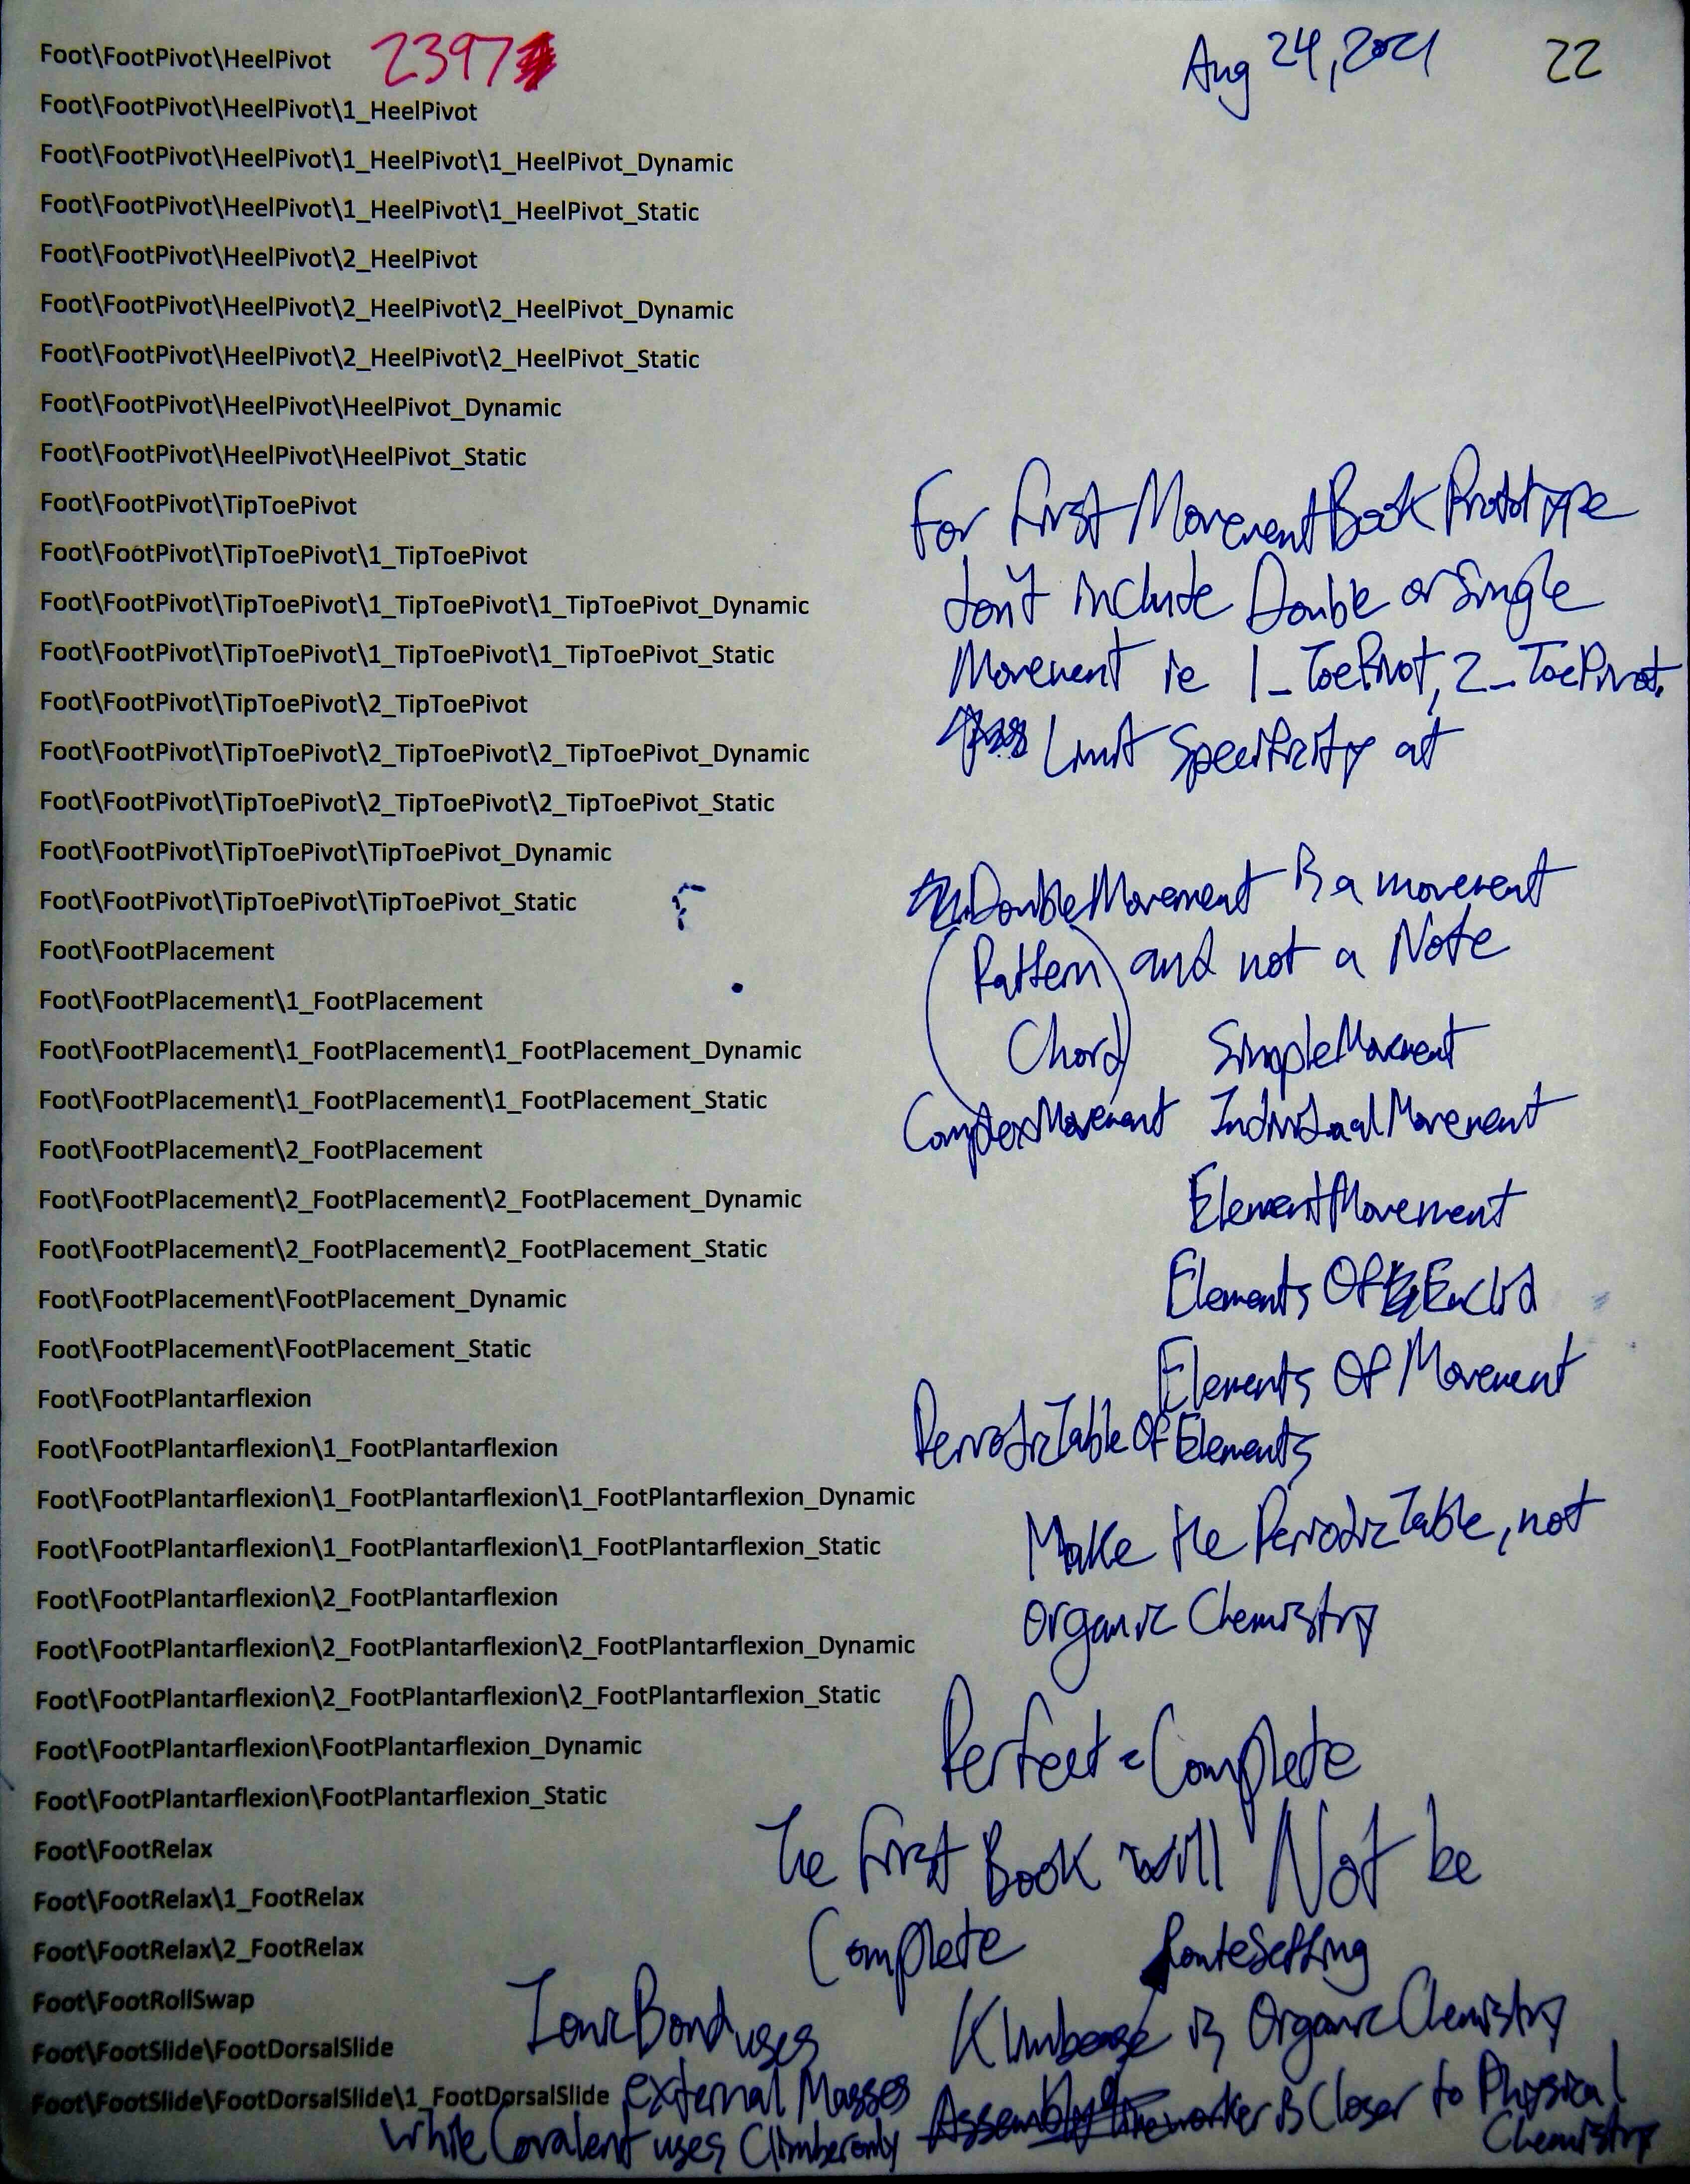 Foot\FootPivot\HeelPivot 2397 Aug 24, 2021 22
Foot\FootPivot\HeelPivot\1_HeelPivot
Foot\FootPivot\HeelPivot\1_HeelPivot\1_HeelPivot_Dynamic
Foot\FootPivot\HeelPivot\1_HeelPivot\1_HeelPivot_Static
Foot\FootPivot\HeelPivot\2_HeelPivot
Foot\FootPivot\HeelPivot\2_HeelPivot\2_HeelPivot_Dynamic
Foot\FootPivot\HeelPivot\2_HeelPivot\2_HeelPivot_Static
Foot\FootPivot\HeelPivot\HeelPivot_Dynamic
Foot\FootPivot\HeelPivot\HeelPivot_Static
Foot\FootPivot\TipToePivot
Foot\FootPivot\TipToePivot\1_TipToePivot
Foot\FootPivot\TipToePivot\1_TipToePivot\1_TipToePivot_Dynamic
Foot\FootPivot\TipToePivot\1_TipToePivot\1_TipToePivot_Static
Foot\FootPivot\TipToePivot\2_TipToePivot
Foot\FootPivot\TipToePivot\2_TipToePivot\2_TipToePivot_Dynamic
Foot\FootPivot\TipToePivot\2_TipToePivot\2_TipToePivot_Static
Foot\FootPivot\TipToePivot\TipToePivot_Dynamic
Foot\FootPivot\TipToePivot\TipToePivot_Static
Foot\FootPlacement
Foot\FootPlacement\1_FootPlacement
Foot\FootPlacement\1_FootPlacement\1_FootPlacement_Dynamic
Foot\FootPlacement\1_FootPlacement\1_FootPlacement_Static
Foot\FootPlacement\2_FootPlacement
Foot\FootPlacement\2_FootPlacement\2_FootPlacement_Dynamic
Foot\FootPlacement\2_FootPlacement\2_FootPlacement_Static
Foot\FootPlacement\FootPlacement_Dynamic
Foot\FootPlacement\FootPlacement_Static
Foot\FootPlantarflexion
Foot\FootPlantarflexion\1_FootPlantarflexion
Foot\FootPlantarflexion\1_FootPlantarflexion\1_FootPlantarflexion_Dynamic
Foot\FootPlantarflexion\1_FootPlantarflexion\1_FootPlantarflexion_Static
Foot\FootPlantarflexion\2_FootPlantarflexion
Foot\FootPlantarflexion\2_FootPlantarflexion\2_FootPlantarflexion_Dynamic
Foot\FootPlantarflexion\2_FootPlantarflexion\2_FootPlantarflexion_Static
Foot\FootPlantarflexion\FootPlantarflexion_Dynamic
Foot\FootPlantarflexion\FootPlantarflexion_Static
Foot\FootRelax
Foot\FootRelax\1_FootRelax
Foot\FootRelax\2_FootRelax
Foot\FootRollSwap
Foot\FootSlide\FootDorsalSlide
Foot\FootSlide\FootDorsalSlide\1_FootDorsalSlide
For First MovementBook Prototype
don't include Double or Single
Movement ie 1_ToePivot, 2_ToePivot.
Limit Specificity at
DoubleMovement is a movement
(Pattern) and not a Note
Chord SimpleMovement
ComplexMovement IndividualMovement
ElementMovement
Elements Of Euclid
Elements Of Movement
PeriodicTable Of Elements
Make the PeriodicTable, not
Organic Chemistry
Perfect = Complete
The First Book will Not be
Complete RouteSetting
IonicBond uses
external Masses
while Covalent uses Climber only
is Organic Chemistry
Assembly line worker is Closer to Physical
Chemistry